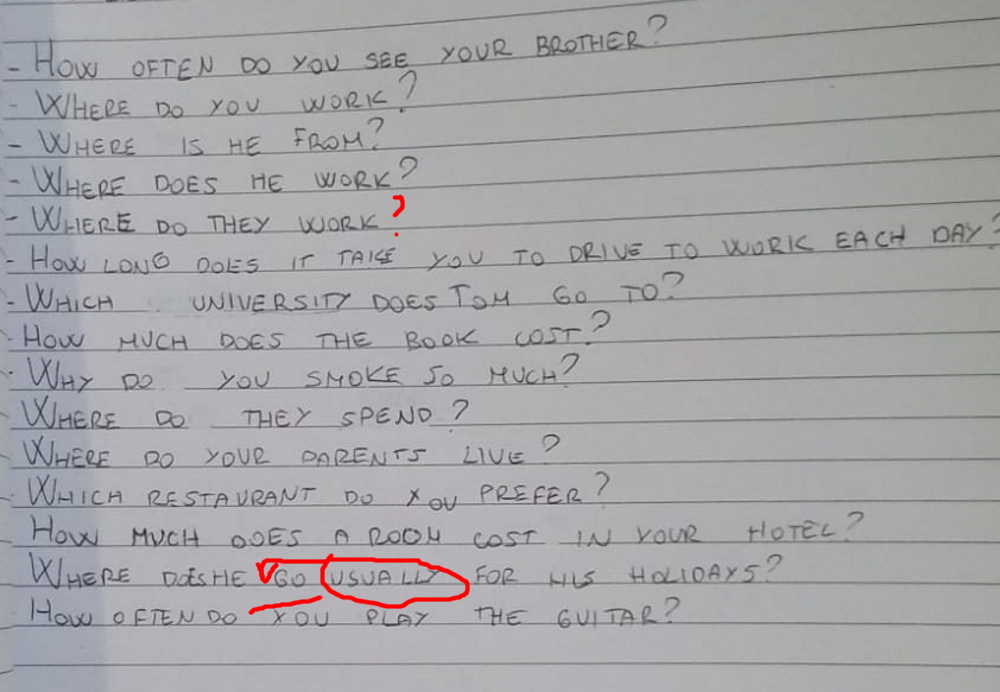 - HOW OFTEN DO YOU SEE YOUR BROTHER?
- WHERE DO YOU WORK?
- WHERE IS HE FROM?
- WHERE DOES HE WORK?
- WHERE DO THEY WORK?
- HOW LONG DOES IT TAKE YOU TO DRIVE TO WORK EACH DAY?
- WHICH UNIVERSITY DOES TOM GO TO?
- HOW MUCH DOES THE BOOK COST?
- WHY DO YOU SMOKE SO MUCH?
WHERE DO THEY SPEND?
WHERE DO YOUR PARENTS LIVE?
- WHICH RESTAURANT DO YOU PREFER?
HOW MUCH DOES A ROOM COST IN YOUR HOTEL?
WHERE DOES HE GO USUALLY FOR HIS HOLIDAYS?
HOW OFTEN DO YOU PLAY THE GUITAR?